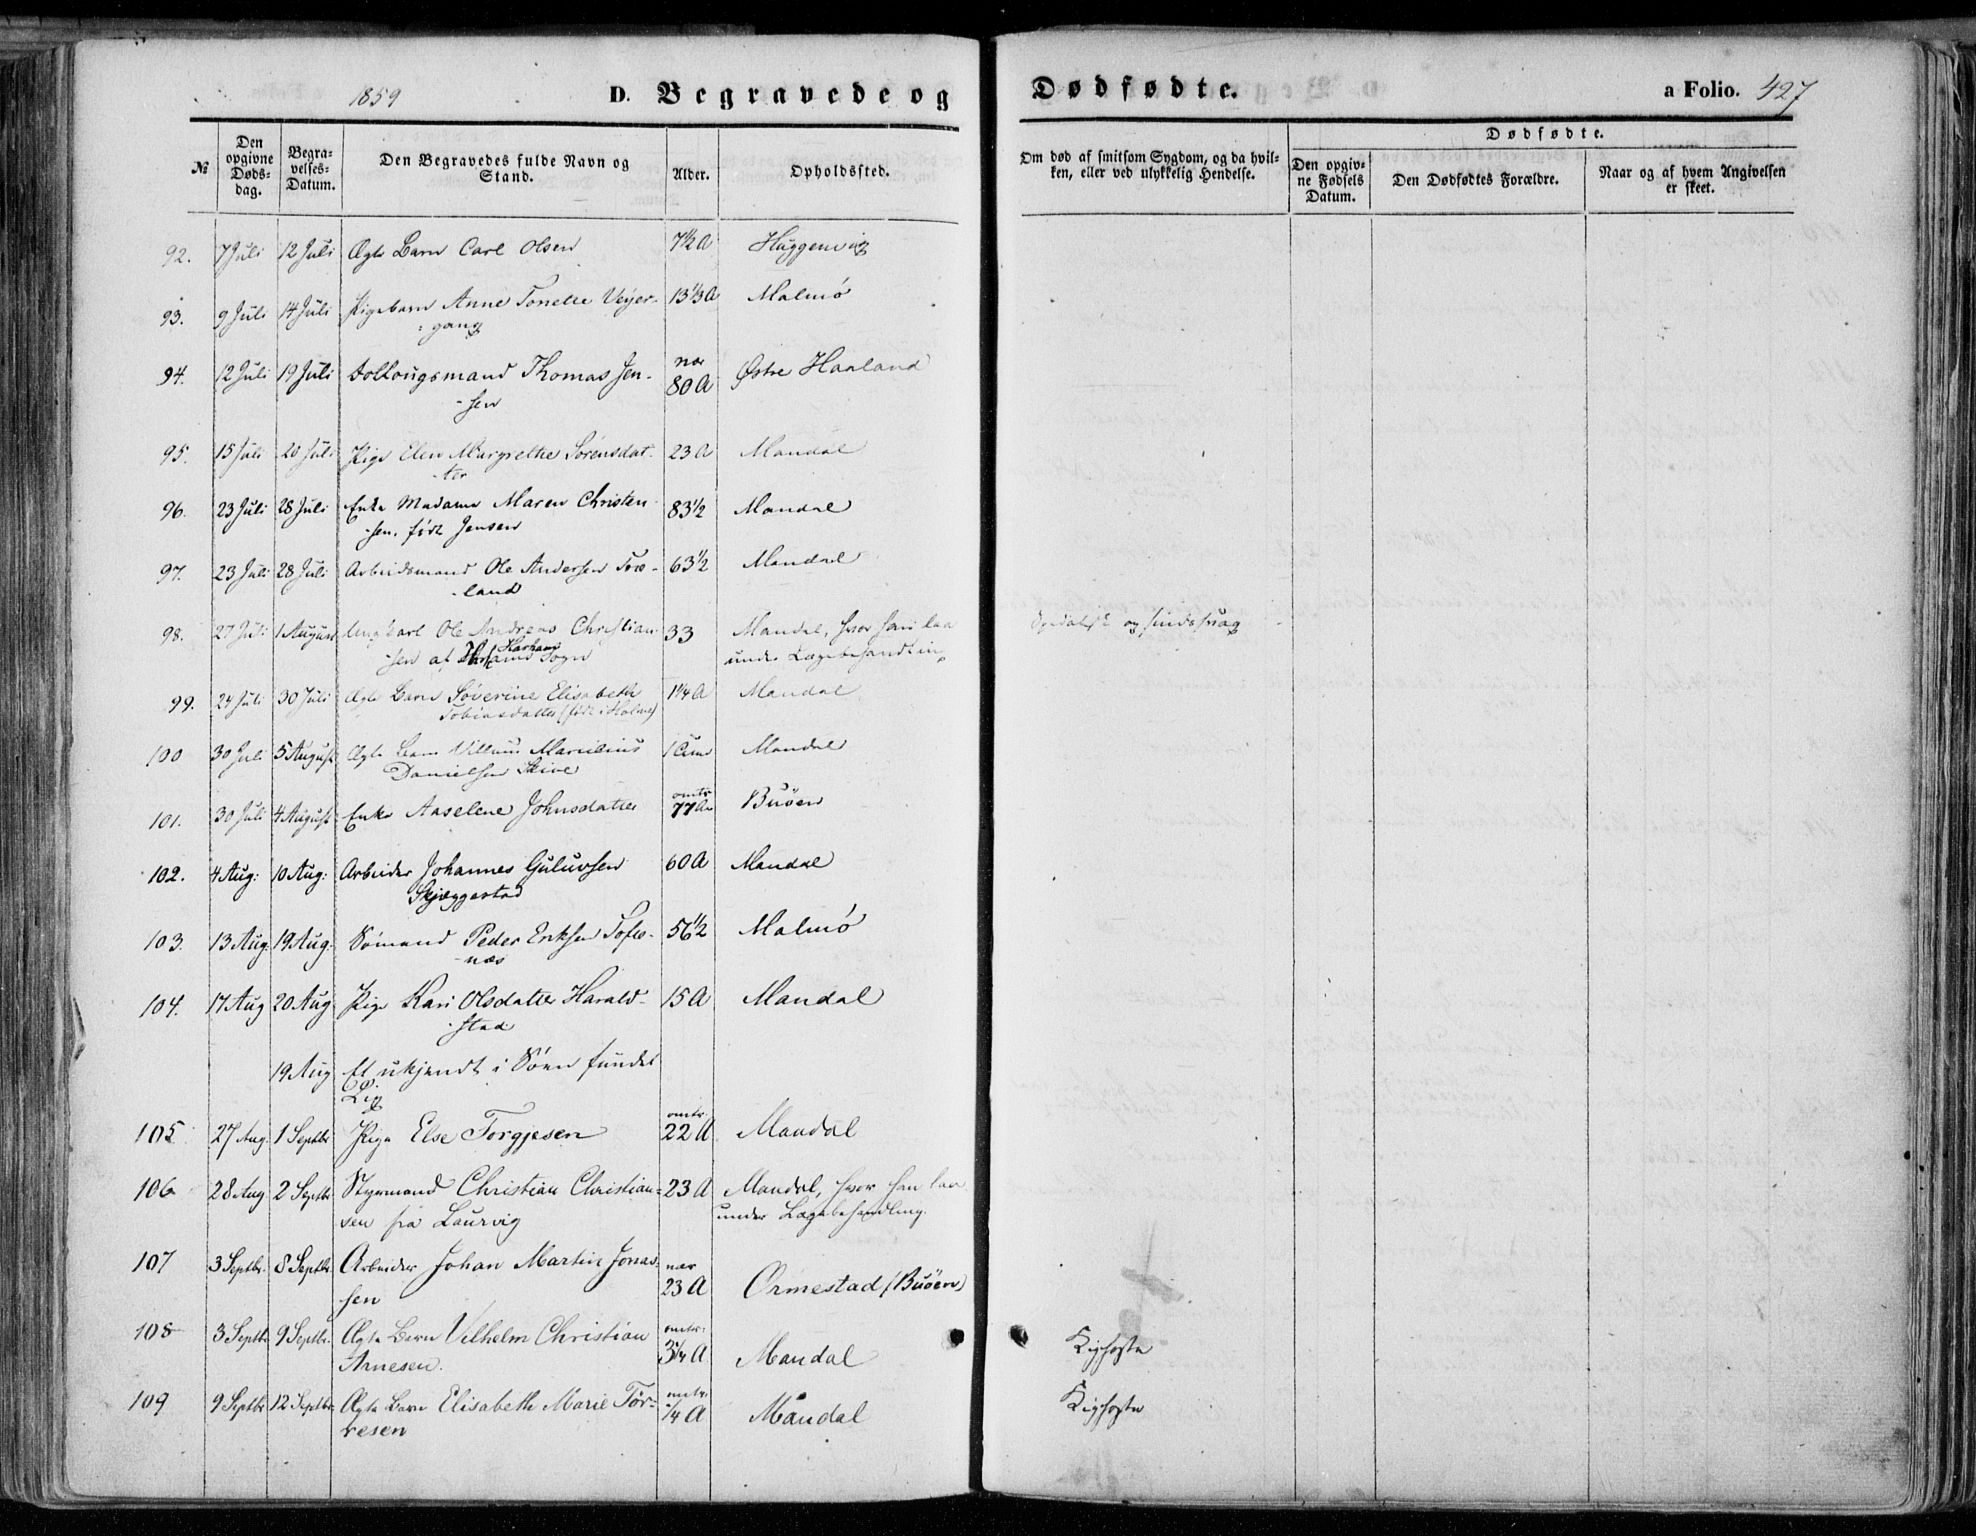 1859 D. Begravede og Dødfødte. a Folio. 427
№ Den opgivne Dødsdag. Begravelses-Datum. Den Begravedes fulde Navn og Stand. Alder. Opholdssted. Om død af smitsom Sygdom, og da hvilken, eller ved ulykkelig Hendelse. Dødfødte. Den opgivne Fødsels Datum. Den Dødfødtes Forældre. Naar og af hvem Angivelsen er skeet.
92. 7 Juli 12 Juli Ægte Barn Carl Olsen 7½ A Huggenvig
93. 9 Juli 14 Juli Pigebarn Anne Tonelie Veyer- 13⅓ A Malmø
gang
94. 12 Juli 19 Juli Follougsmand Thomas Jen- nær 80 A Østre Haaland
-sen
95. 15 Juli 20 Juli Pige Elen Margrethe Sørensdat- 23 A Mandal
-ter
96. 23 Juli 28 Juli Enke Madame Maren Christen- 83½ Mandal
-sen, født Jensen
97. 23 Juli 28 Juli Arbeidsmand Ole Andersen 63½ Mandal
-land
98. 27 Juli 1 August Ungkarl Ole Andreas Christian- 33 Mandal, hvor han laa Spedalsk og
-sen af Sogn under Lægebehandling
99. 24 Juli 30 Juli Ægte Barn Søverine Elisabeth 1¼ A Mandal
Tobiasdatter (født i Holme)
100 30 Juli 5 August Ægte Barn Villum Marcilius Mandal
Danielsen Skive
101. 30 Juli 4 August Enke Aaselene Johnsdatter omtr. 77 A Buøen
102. 4 Aug: 10 Aug: Arbeider Johannes Guluvsen 60 A Mandal
Skjæggestad
103. 13 Aug. 19 Aug. Sømand Peder Eriksen Tofte- 56½ Malmø
-næs
104. 17 Aug 20 Aug Pige Kari Olsdatter Harald- 15 A Mandal
-stad
19 Aug Et ukjendt i Søen fundet
Lig
105 27 Aug. 1 Septbr Pige Else Torgjesen omtr. 22 A Mandal
106 28 Aug 2 Septbr Styrmand Christian Christian- 23 A Mandal, hvor han laa
sen fra Laurvig under Lægebehandling.
107 3 Septbr. 8 Septbr. Arbeider Johan Martin Jonas- nær 23 A Ormestad (Buøen)
sen
108 3 Septbr 9 Septbr. Ægte Barn Vilhelm Christian omtr. 3¼ A Mandal Kighoste
Arnesen.
109 9 Septbr 12 Septbr. Ægte Barn Elisabeth Marie Tør- omtr. ¼ A Mandal Kighoste
resen